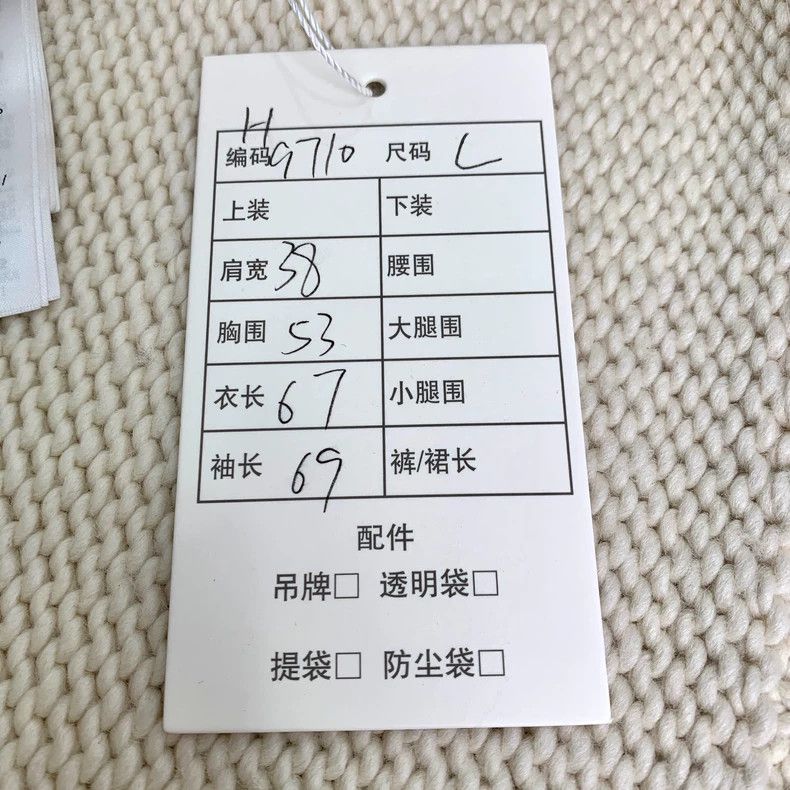 H
编码9710 尺码 L
上装 下装
肩宽 38 腰围
胸围 53 大腿围
衣长 67 小腿围
袖长 69 裤/裙长
配件
吊牌□ 透明袋□
提袋□ 防尘袋□